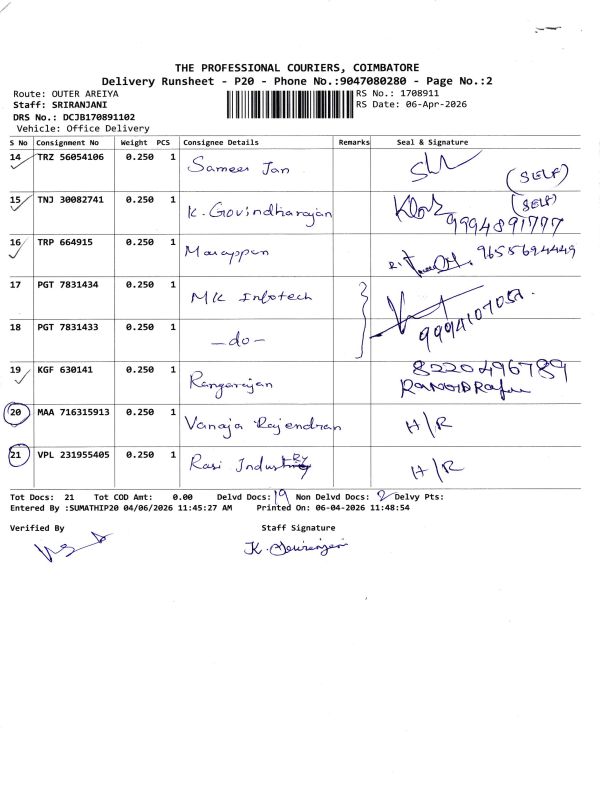 THE PROFESSIONAL COURIERS, COIMBATORE
Delivery Runsheet - P20 - Phone No.:9047080280 - Page No.:2
Route: OUTER AREIYA RS No.: 1708911
Staff: SRIRANJANI RS Date: 06-Apr-2026
DRS No.: DCJB170891102
Vehicle: Office Delivery
S No Consignment No Weight PCS Consignee Details Remarks Seal & Signature
14 TRZ 56054106 0.250 1 Sameer Jan (SELF)
15 TNJ 30082741 0.250 1 K. Govindharajan (SELF)
9994891777
16 TRP 664915 0.250 1 Marappan 9655694449
17 PGT 7831434 0.250 1 MK Infotech
9994107057
18 PGT 7831433 0.250 1 -do-
19 KGF 630141 0.250 1 Rangarajan 8220496789
20 MAA 716315913 0.250 1 Vanaja Rajendran H/R
21 VPL 231955405 0.250 1 Rasi Industry H/R
Tot Docs: 21 Tot COD Amt: 0.00 Delvd Docs: 19 Non Delvd Docs: 2 Delvy Pts:
Entered By :SUMATHIP20 04/06/2026 11:45:27 AM Printed On: 06-04-2026 11:48:54
Verified By Staff Signature